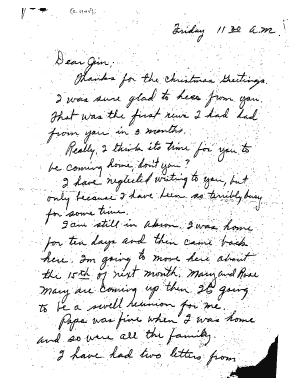 Friday 11 30 A.M.
Dear Jim,
Thanks for the Christmas Greetings.
I was sure glad to hear from you.
That was the first news I had had
from you in 3 months.
Really, I think its time for you to
be coming home, don't you?
I have neglected writing to you, but
only because I have been so terribly busy
for some time.
I am still in Akron. I was home
for ten days and then came back
here. I'm going to move here about
the 15th of next month. Mary and Rose
Mary are coming up then. It's going
to be a swell reunion for me.
Papa was fine when I was home
and so were all the family.
I have had two letters from